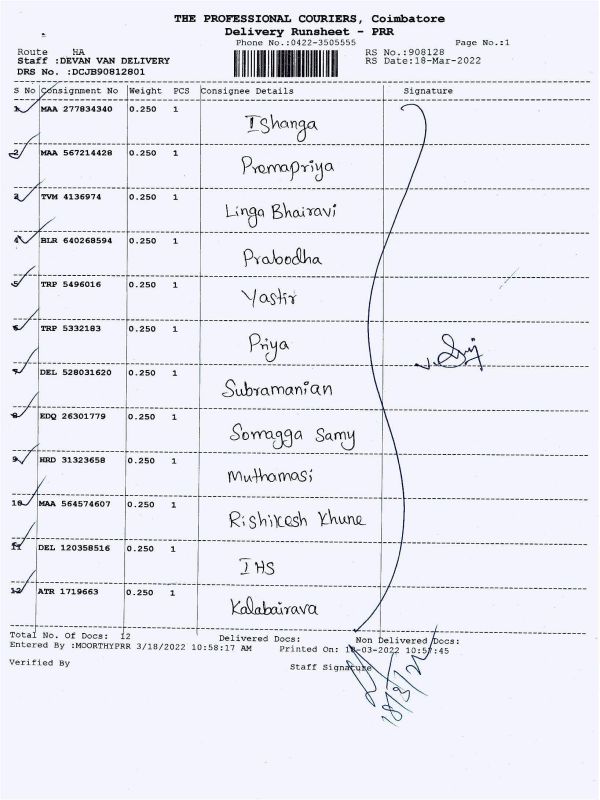 THE PROFESSIONAL COURIERS, Coimbatore
Delivery Runsheet - PRR
Phone No.:0422-3505555 Page No.:1
Route HA RS No.:908128
Staff :DEVAN VAN DELIVERY RS Date:18-Mar-2022
DRS No. :DCJB90812801
S No Consignment No Weight PCS Consignee Details Signature
1 MAA 277834340 0.250 1 Ishanga
2 MAA 567214428 0.250 1 Premapriya
3 TVM 4136974 0.250 1 Linga Bhairavi
4 BLR 640268594 0.250 1 Prabodha
5 TRP 5496016 0.250 1 Yastir
6 TRP 5332183 0.250 1 Priya
7 DEL 528031620 0.250 1 Subramanian
8 EDQ 26301779 0.250 1 Somagga Samy
9 HRD 31323658 0.250 1 Muthamasi
10 MAA 564574607 0.250 1 Rishikesh Khune
11 DEL 120358516 0.250 1 IHS
12 ATR 1719663 0.250 1 Kalabairava
Total No. Of Docs: 12 Delivered Docs: Non Delivered Docs:
Entered By :MOORTHYPRR 3/18/2022 10:58:17 AM Printed On: 18-03-2022 10:57:45
Verified By Staff Signature
18/3/22